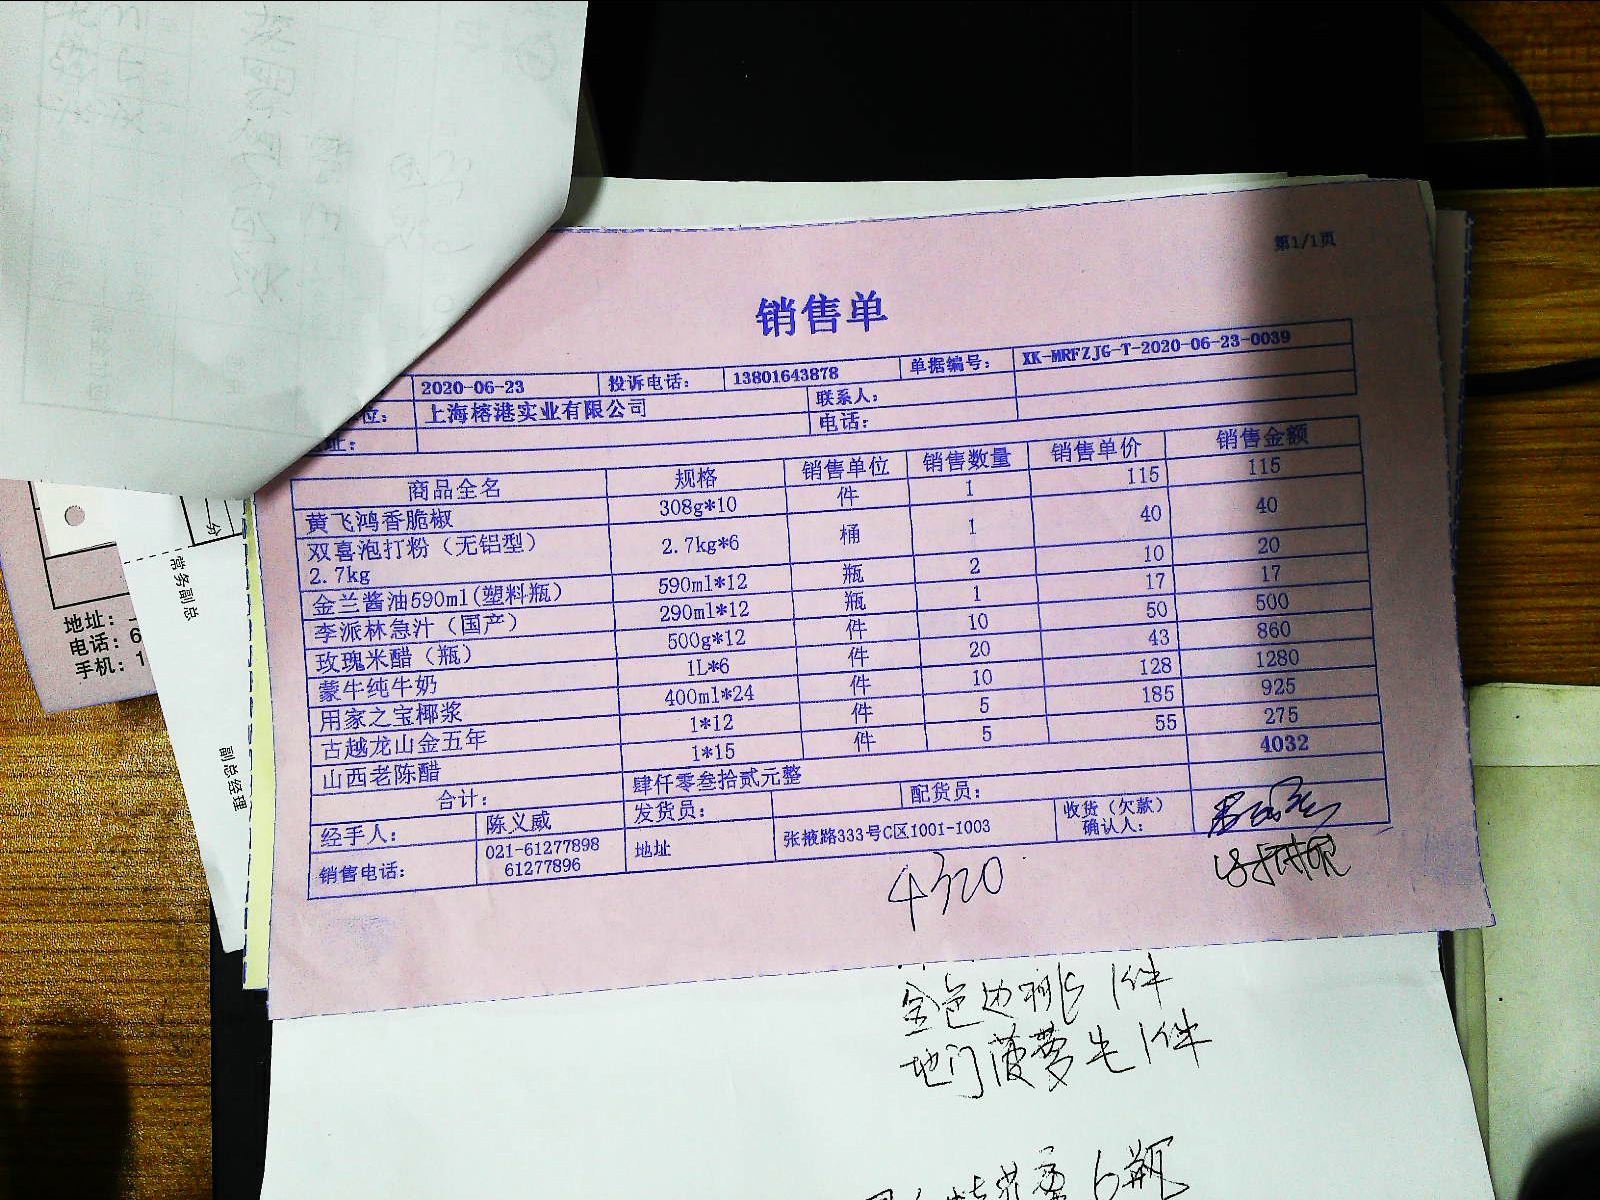 第1/1页
销售单
2020-06-23 投诉电话: 13801643878 单据编号: XK-MRFZJG-T-2020-06-23-0039
位: 上海榕港实业有限公司 联系人:
址: 电话:
商品全名 规格 销售单位 销售数量 销售单价 销售金额
黄飞鸿香脆椒 308g*10 件 1 115 115
双喜泡打粉（无铝型） 2.7kg*6 桶 1 40 40
2.7kg
金兰酱油590ml(塑料瓶) 590ml*12 瓶 2 10 20
李派林急汁（国产） 290ml*12 瓶 1 17 17
玫瑰米醋（瓶） 500g*12 件 10 50 500
蒙牛纯牛奶 1L*6 件 20 43 860
用家之宝椰浆 400ml*24 件 10 128 1280
古越龙山金五年 1*12 件 5 185 925
山西老陈醋 1*15 件 5 55 275
合计: 肆仟零叁拾贰元整 4032
经手人: 陈义威 发货员: 配货员: 收货（欠款）
确认人:
销售电话: 021-61277898 地址 张掖路333号C区1001-1003
61277896
4320
1件
1件
6瓶
分
常务副总
副总经理
地址:
电话: 6
手机: 1